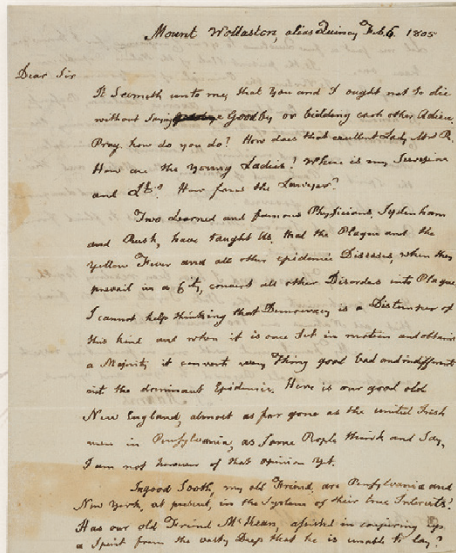 Mount Wollaston, alias Quincy Feb. 6. 1805
Dear Sir
It seemeth unto me, that you and I ought not to die
without saying Goodby or bidding each other Adieu.
Pray how do you do? How does that excellent Lady Mrs R.
How are the young Ladies? Where is my Surgeon
and Lt? How fares the Lawyer?
Two Learned and famous Physicians, Sydenham
and Rush, have taught Us, that the Plague and the
yellow Fever and all other epidemic Diseases, when they
prevail in a City, convert all other Disorders into Plague.
I cannot help thinking that Democracy is a Distemper of
this kind and when it is once set in motion and obtains
a Majority it converts every Thing good bad and indifferent
into the dominant Epidemic. Here is our good old
New England, almost as far gone as the united Irish
men in Pensylvania, as some People think and Say,
I am not however of that opinion yet.
In good Sooth, my old Friend, are Pensylvania and
New York, at present, in the System of their true Interests?
Has our old Friend McKean, assisted in conjuring up
a Spirit from the vasty Deep that he is unable to lay?